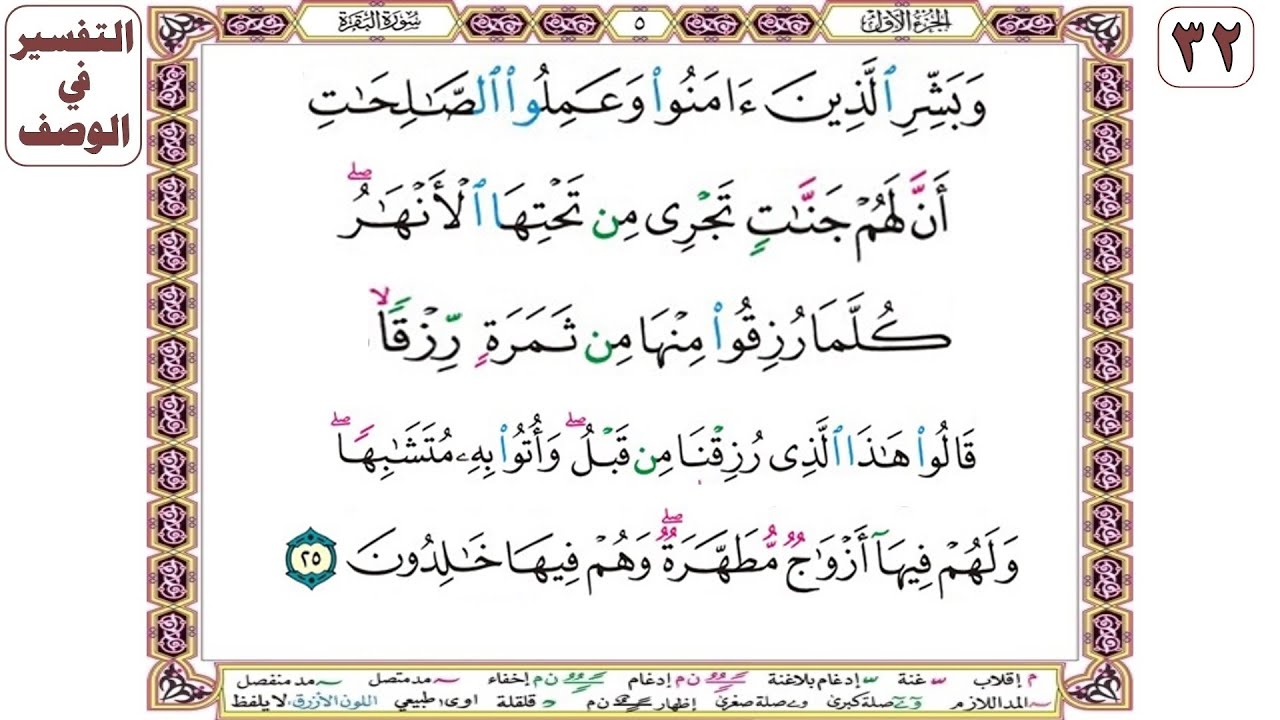 التفسير
في
الوصف
سورة البقرة
٥
الجزء الأول
٣٢
وَبَشِّرِ ٱلَّذِينَ ءَامَنُوا۟ وَعَمِلُوا۟ ٱلصَّـٰلِحَـٰتِ
أَنَّ لَهُمْ جَنَّـٰتٍ تَجْرِى مِن تَحْتِهَا ٱلْأَنْهَـٰرُ ۖ
كُلَّمَا رُزِقُوا۟ مِنْهَا مِن ثَمَرَةٍ رِّزْقًا ۙ
قَالُوا۟ هَـٰذَا ٱلَّذِى رُزِقْنَا مِن قَبْلُ ۖ وَأُتُوا۟ بِهِۦ مُتَشَـٰبِهًا ۖ
وَلَهُمْ فِيهَآ أَزْوَٰجٌ مُّطَهَّرَةٌ ۖ وَهُمْ فِيهَا خَـٰلِدُونَ ٢٥
م إقلاب غنة إدغام بلاغنة ن م إدغام ن م إخفاء مد متصل مد منفصل
المد اللازم صلة كبرى صلة صغرى إظهار ن م قلقلة اوى طبيعي اللون الأزرق لا يلفظ